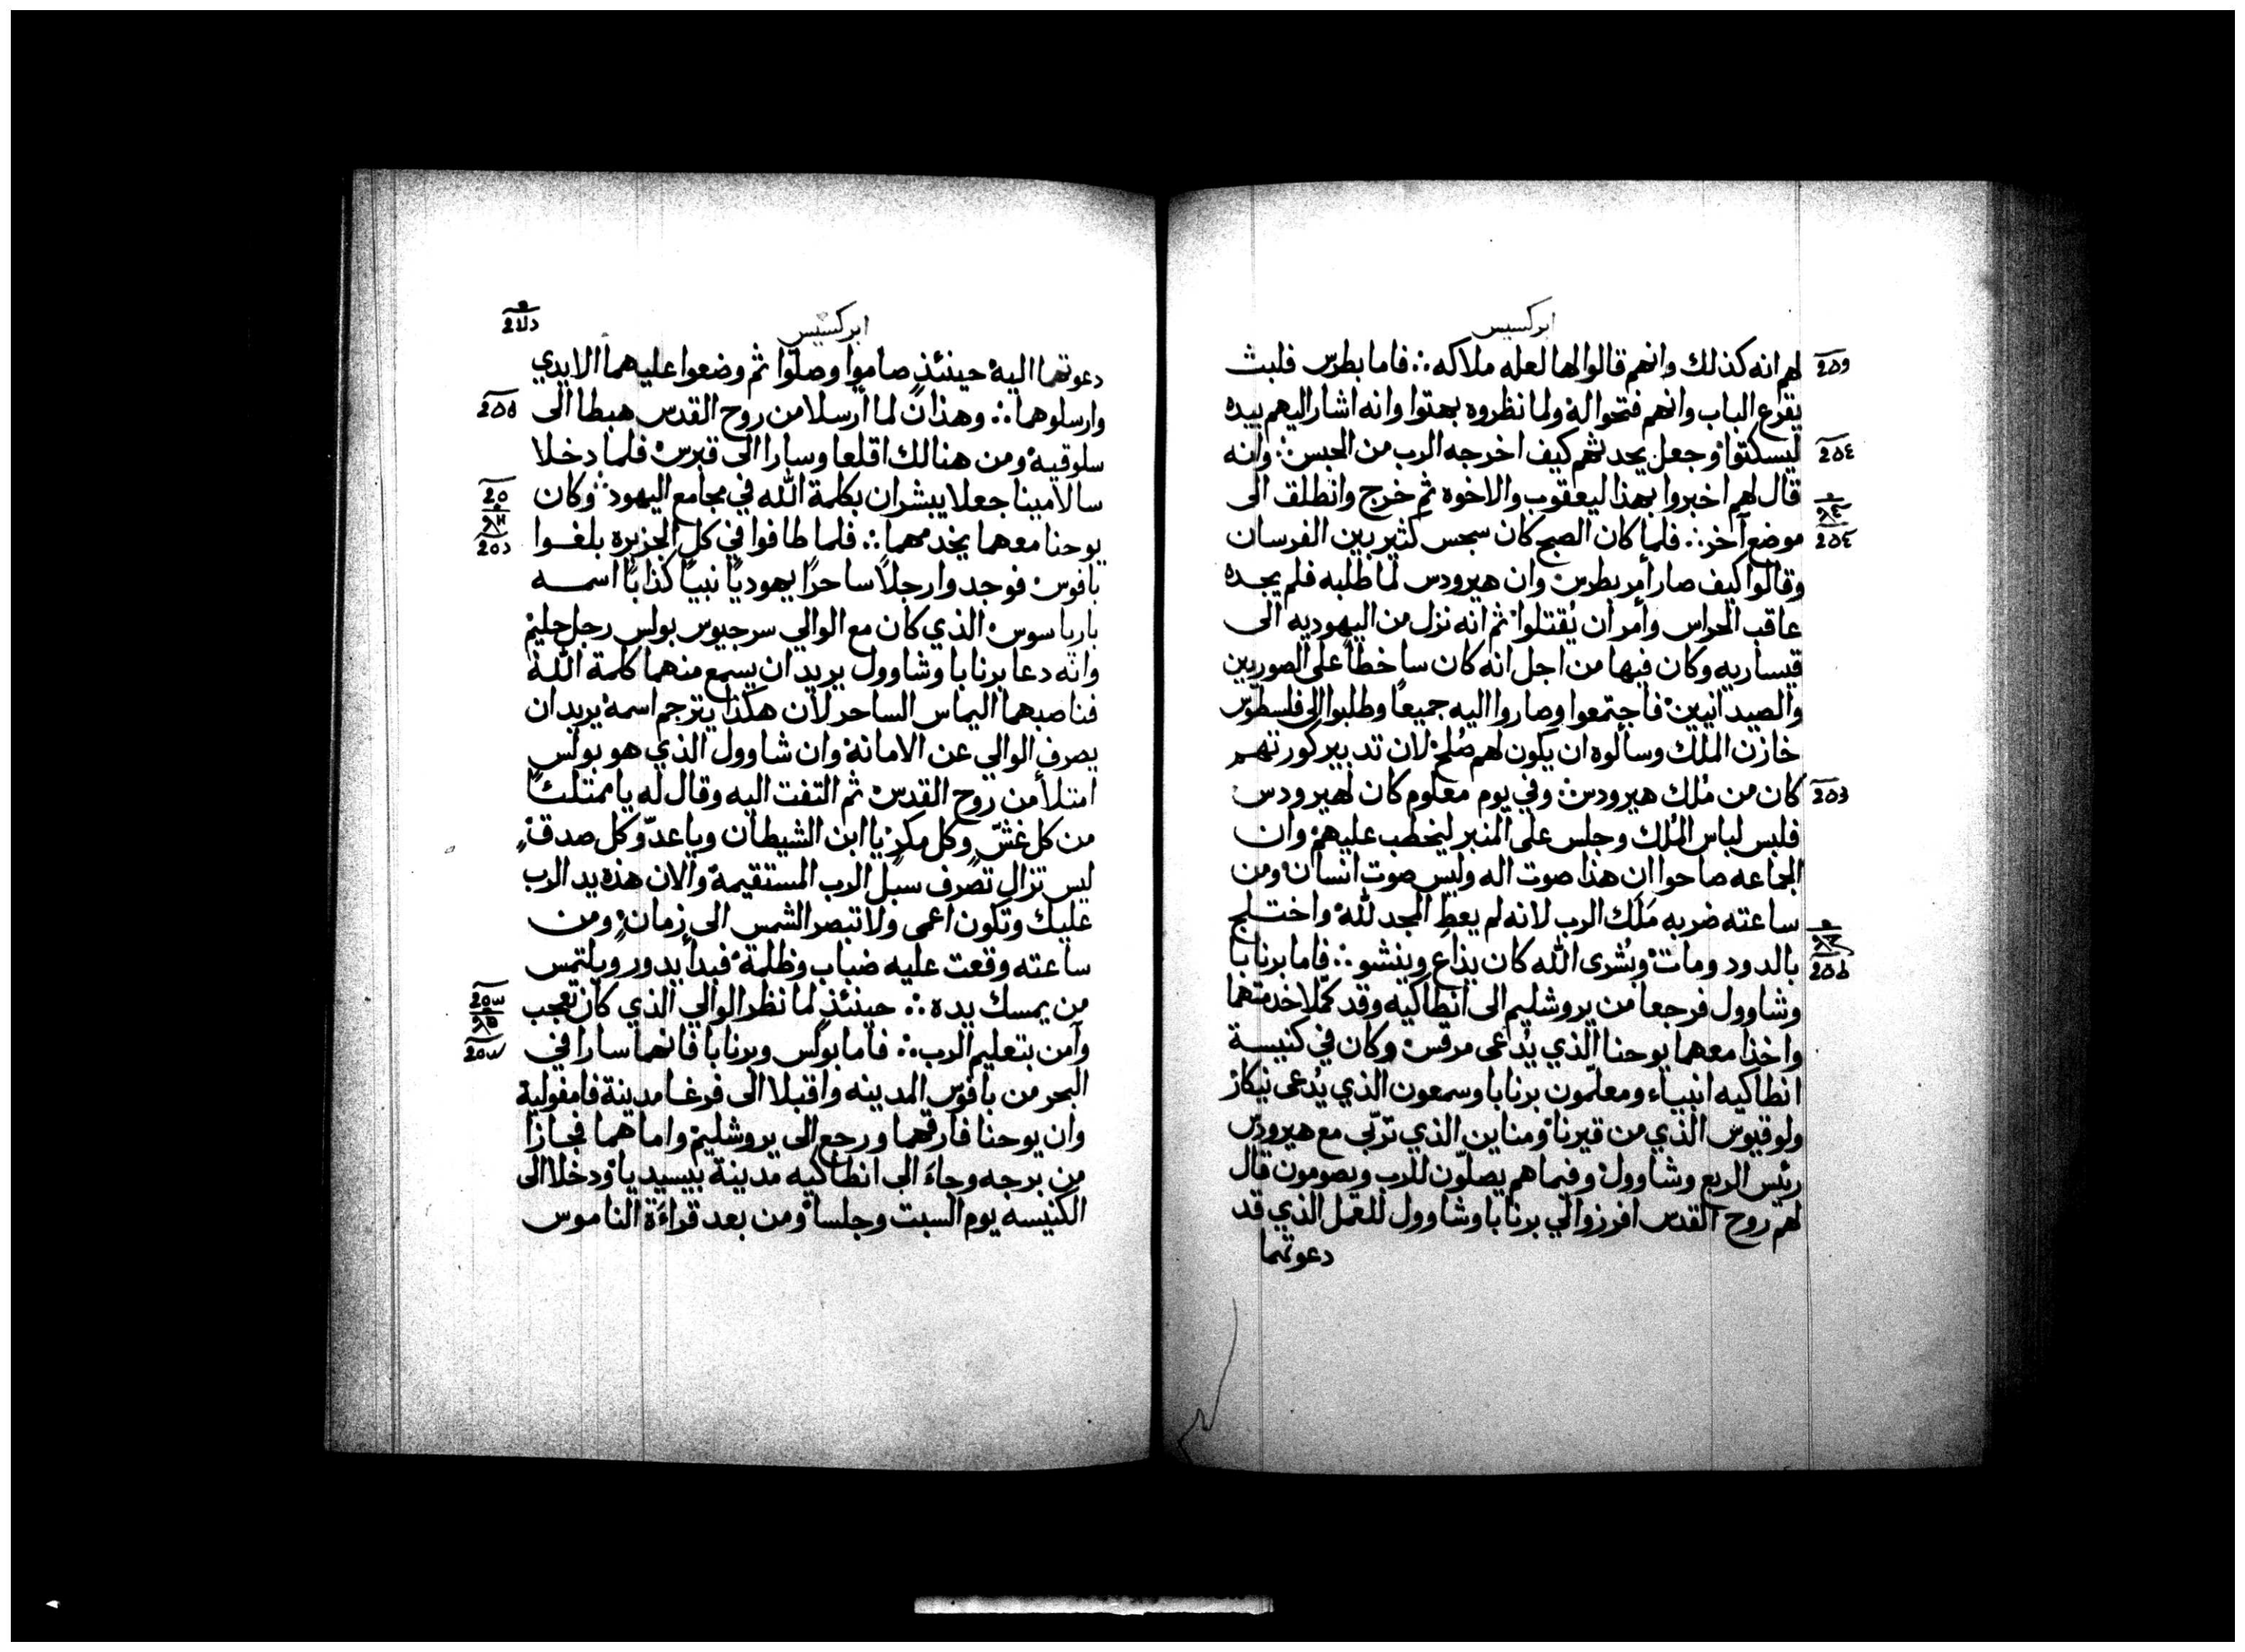 ابركسيس
لهم انه كذلك وانهم قالوا لها لعله ملاكه ⁖ فاما بطرس فلبث
يقرع الباب وانهم فتحوا له ولما نظروه بهتوا وانه اشار اليهم بيده
ليسكتوا وجعل يحدثهم كيف اخرجه الرب من الحبس وانه
قال لهم اخبروا بهذا ليعقوب والاخوه ثم خرج وانطلق الى
موضع آخر ⁖ فلما كان الصبح كان سجس كثير بين الفرسان
وقالوا كيف صار أمر بطرس وان هيرودس لما طلبه فلم يجده
عاقب الحراس وأمر ان يُقتلوا ثم انه نزل من اليهوديه الى
قيساريه وكان فيها من اجل انه كان ساخطاً على الصوريين
والصيدانيين فاجتمعوا وصاروا اليه جميعاً وطلبوا الى فلسطوس
خازن الملك وسألوه ان يكون لهم صُلح لان تدبير كورتهم
كان من مُلك هيرودس وفي يوم معلوم كان لهيرودس
فلبس لباس المُلك وجلس على المنبر ليخطب عليهم وان
الجماعه صاحوا ان هذا صوت اله وليس صوت انسان ومن
ساعته ضربه مَلَك الرب لانه لم يعطِ المجد لله واختلج
بالدود ومات وبُشرى الله كان يذاع وينشو ⁖ فاما برنابا
وشاوول فرجعا من يروشليم الى انطاكيه وقد كمّلا خدمتهما
واخذا معهما يوحنا الذي يُدعى مرقس وكان في كنيسة
انطاكيه انبياء ومعلّمون برنابا وسمعون الذي يُدعى نيكاز
ولوقيوس الذي من قيرنا ومناين الذي تربّى مع هيرودس
رئيس الربع وشاوول وفيما هم يصلّون للرب ويصومون قال
لهم روح القدس افرزوا لي برنابا وشاوول للعمل الذي قد
دعوتهما
ابركسيس
دعوتهما اليه حينئذٍ صاموا وصلّوا ثم وضعوا عليهما الايدي
وارسلوهما ⁖ وهذان لما ارسلا من روح القدس هبطا الى
سلوقيه ومن هنالك اقلعا وسارا الى قبرس فلما دخلا
سالامينا جعلا يبشران بكلمة الله في مجامع اليهود وكان
يوحنا معهما يخدمهما ⁖ فلما طافوا في كل الجزيره بلغوا
بافوس فوجدوا رجلاً ساحراً يهودياً نبياً كذاباً اسمه
بارياسوس الذي كان مع الوالي سرجيوس بولس رجل حليم
وانه دعا برنابا وشاوول يريد ان يسمع منهما كلمة الله
فناصبهما اليماس الساحر لان هكذا يترجم اسمه يريد ان
يصرف الوالي عن الامانه وان شاوول الذي هو بولس
امتلأ من روح القدس ثم التفت اليه وقال له يا ممتلئاً
من كل غشّ وكل مكرٍ يا ابن الشيطان ويا عدّو كل صدقٍ
ليس تزال تصرف سبُل الرب المستقيمة والان هذه يد الرب
عليك وتكون اعمى ولا تبصر الشمس الى زمان ومن
ساعته وقعت عليه ضباب وظلمة فبدأ يدور ويلتمس
من يمسك يده ⁖ حينئذٍ لما نظر الوالي الذي كان تعجب
وآمن بتعليم الرب ⁖ فاما بولس وبرنابا فانهما سارا في
البحر من بافوس المدينه واقبلا الى فرغا مدينة فامفولية
وان يوحنا فارقهما ورجع الى يروشليم واما هما فجازا
من برجه وجاءَ الى انطاكيه مدينة بيسيديا ودخلا الى
الكنيسه يوم السبت وجلسا ومن بعد قراءَة الناموس